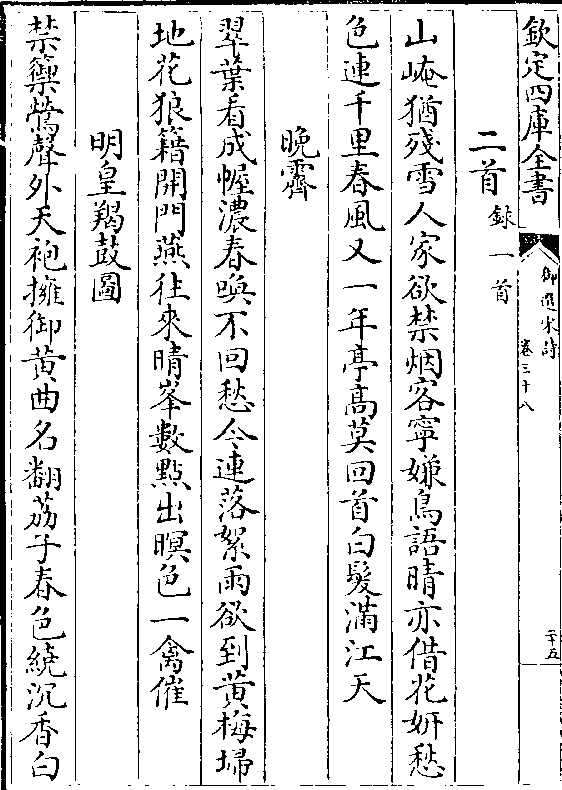 欽定四庫全書
御選宋詩
卷三十八
二十五
二首錄一首
山崦猶殘雪人家欲禁烟客寧嫌鳥語晴亦借花妍愁
色連千里春風又一年亭髙莫回首白髮滿江天
晩霽
翠葉看成幄濃春喚不回愁今連落絮雨欲到黄梅埽
地花狼籍開門燕往來晴峯數點出暝色一禽催
明皇羯鼓圖
禁籞鶯聲外天袍擁御黄曲名翻荔子春色繞沉香白